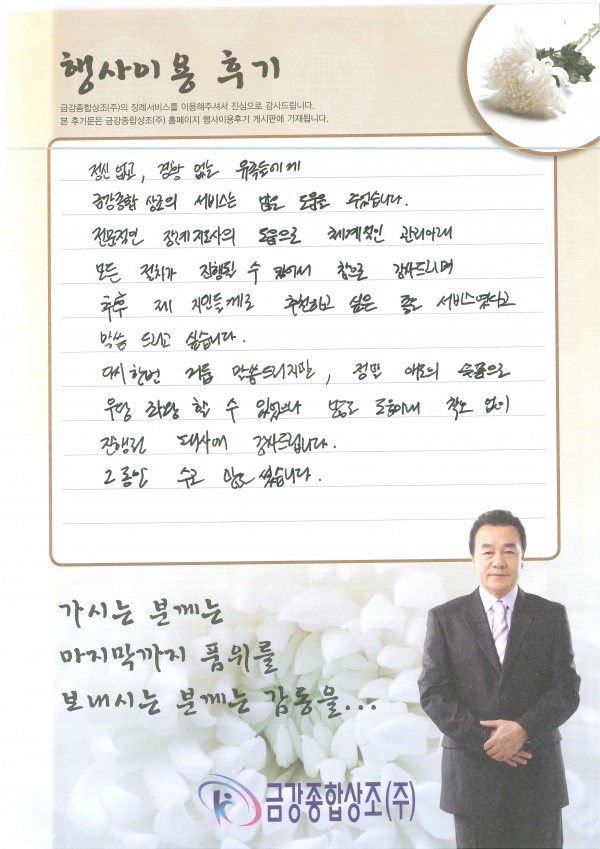 행사이용 후기
금강종합상조(주)의 장례서비스를 이용해주셔서 진심으로 감사드립니다.
본 후기문은 금강종합상조(주) 홈페이지 행사이용후기 게시판에 기재됩니다.
정신 없고, 경황 없는 유족들에게
금강종합 상조의 서비스는 많은 도움을 주었습니다.
전문적인 장례지도사의 도움으로 체계적인 관리아래
모든 절차가 진행될 수 있어서 참으로 감사드리며
추후 제 지인들께도 추천하고 싶은 좋은 서비스였다고
말씀 드리고 싶습니다.
다시한번 거듭 말씀드리지만, 정말 애도의 슬픔으로
우왕 좌왕 할 수 있었으나 많은 도움아래 착오 없이
진행된 대사에 감사드립니다.
그동안 수고 많으셨습니다.
가시는 분께는
마지막까지 품위를
보내시는 분께는 감동을...
금강종합상조(주)